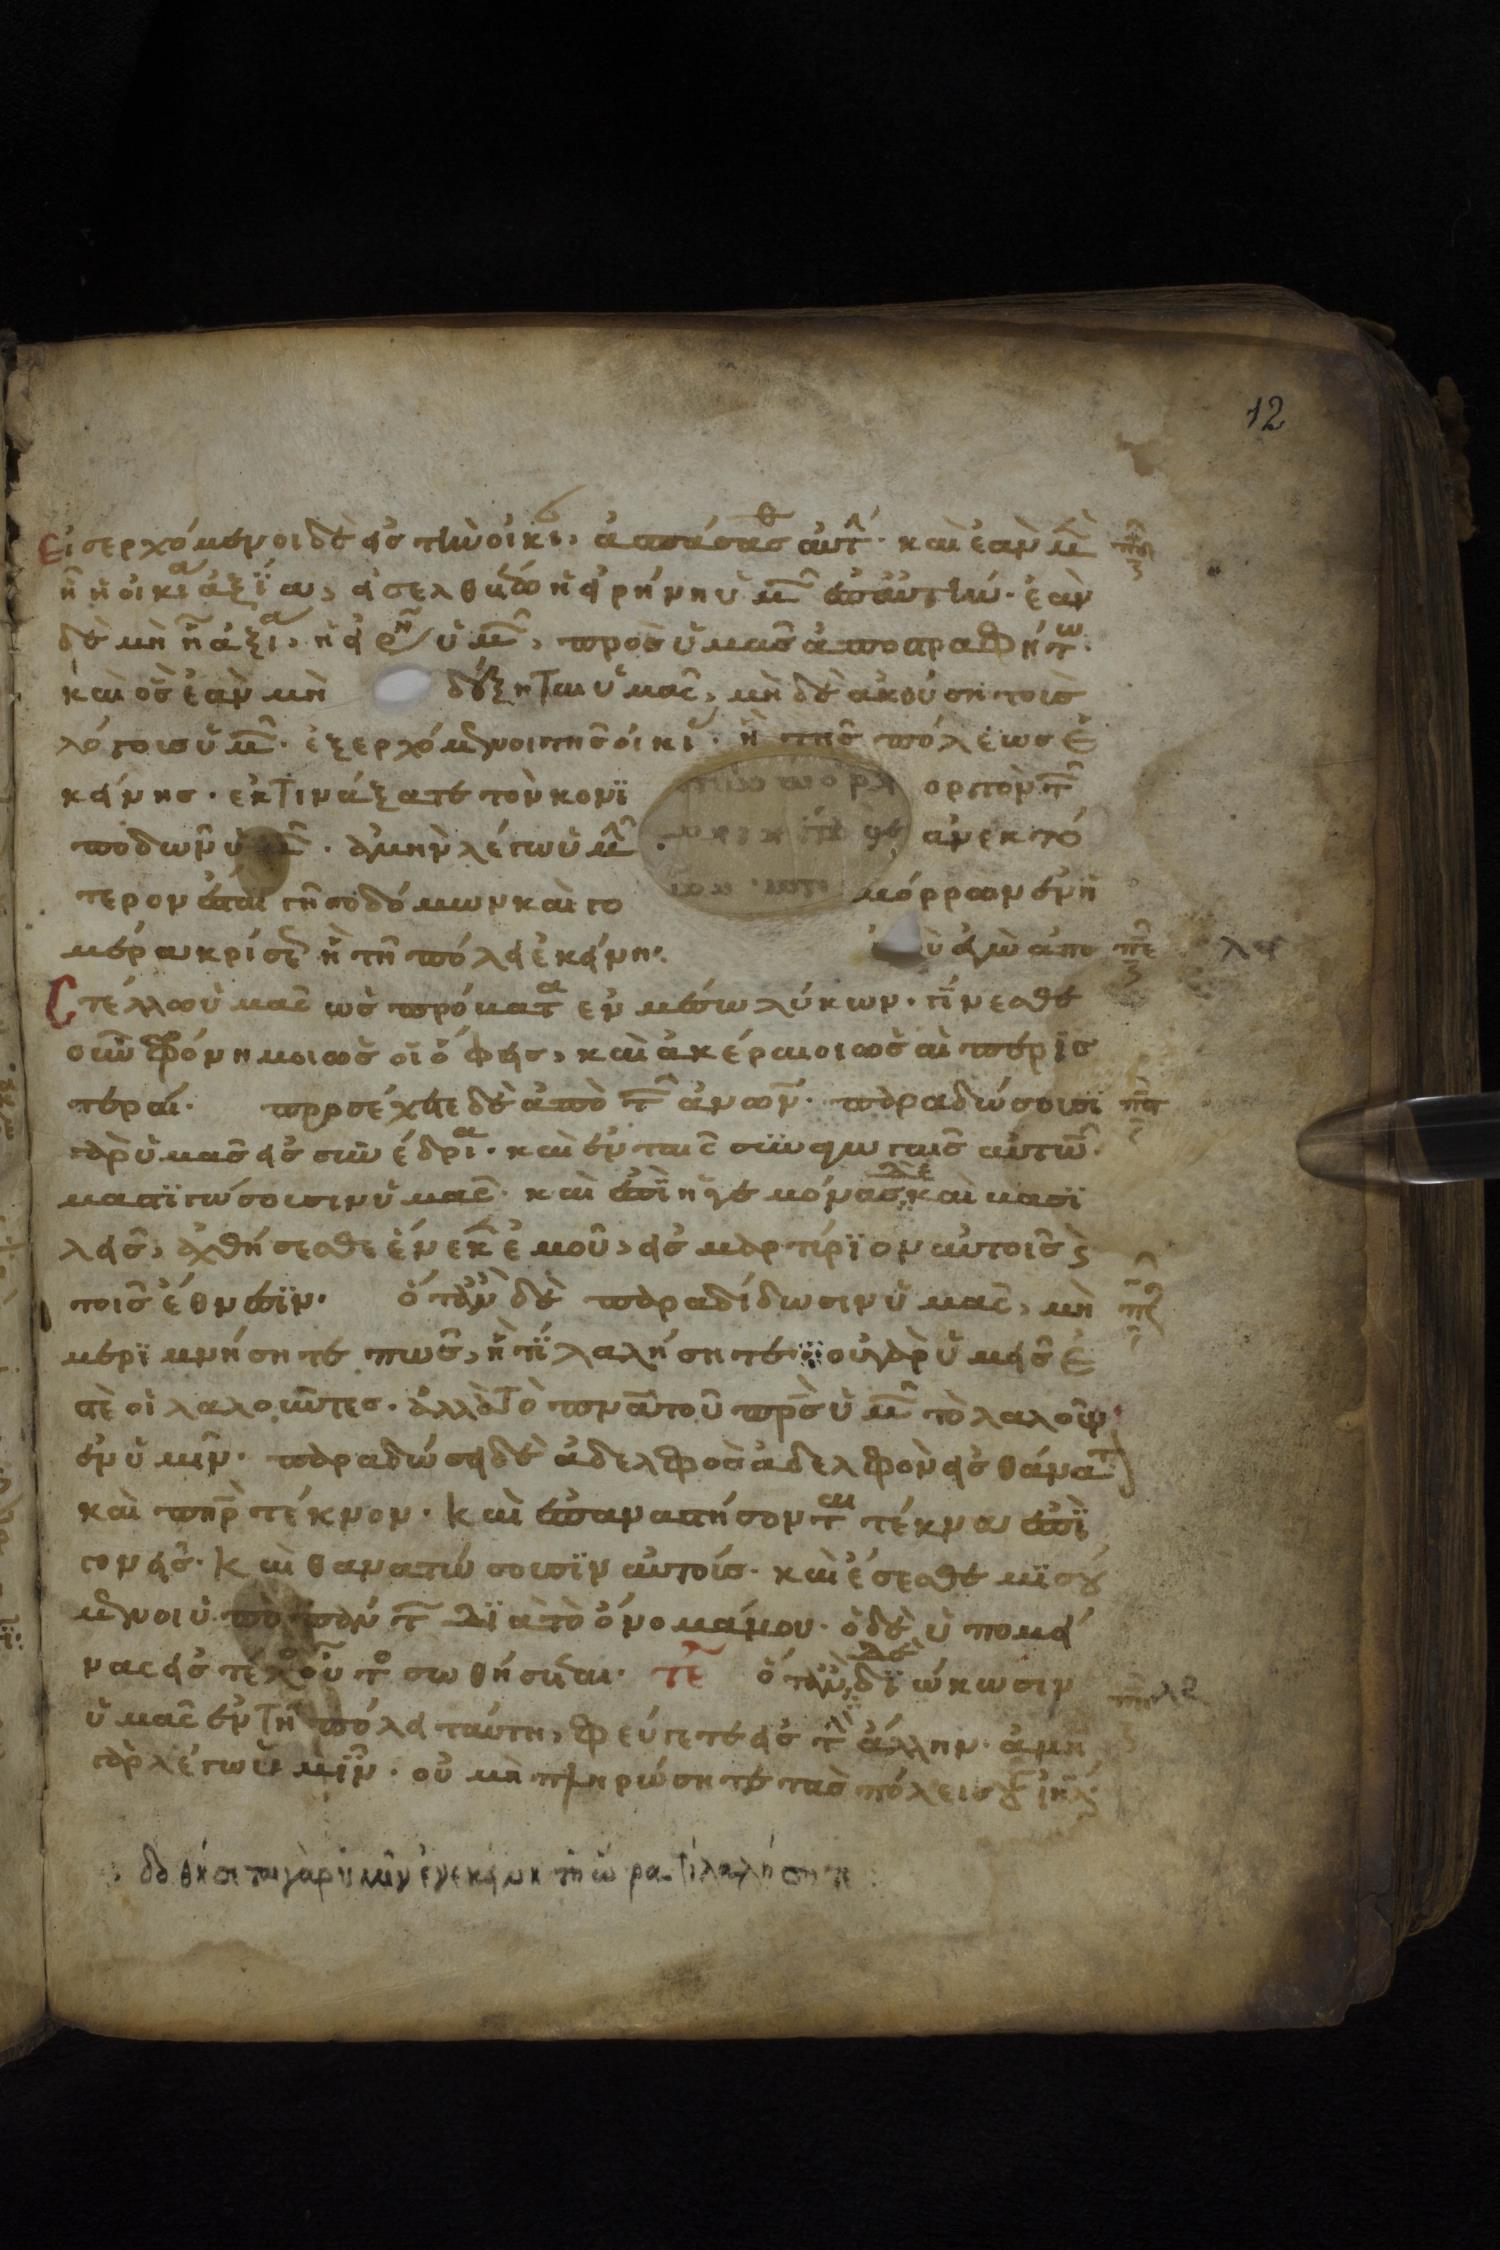 12
Εἰσερχόμενοι δὲ εἰς τὴν οἰκί, ἀσπάσασθ αὐτ· καὶ ἐὰν μὲν
ἦ ἡ οἰκία ἀξία, εἰσελθέτω ἡ εἰρήνη ὑμῶν ἐπ αὐτήν· ἐὰν
δὲ μὴ ἦ ἀξία, ἡ εἰρην ὑμῶν, πρὸς ὑμᾶς ἀποστραφήτω·
καὶ ὃς ἐὰν μὴ δέξηται ὑμᾶς, μὴ δὲ ἀκούση τοὺς
λόγοις ὑμῶν· ἐξερχόμενοι τῆς οἰκί· ἢ τῆς πόλεως ἐ
κείνης· ἐκτινάξατε τὸν κονϊ ορτὸν τῶν
ποδων ὑμῶν· ἀμὴν λέγω ὑμῖν· ἀνεκτό
τερον ἔσται γῆ σοδόμων καὶ γο μόρρων ἐν ἡ
μέρα κρίσεως ἢ τῆ πόλει ἐκείνη· ἐγὼ ἀπο
Στέλλω ὑμᾶς ὡς πρόβατα ἐν μέσω λύκων· γίνεσθε
οὖν φρόνημοι ὡς οἱ ὄφεις, καὶ ἀκέραιοι ὡς αἱ περισ
τεραί· προσέχετε δὲ ἀπὸ τῶν ἀνων· παραδώσουσι
γὰρ ὑμᾶς εἰς συνέδρια· καὶ ἐν ταῖς συναγωγαῖς αὐτῶν·
μαστϊγώσουσιν ὑμᾶς· καὶ ἐπὶ ἡγεμόνας δὲ καὶ βασϊ
λεῖς, ἀχθήσεσθε ἕνεκεν ἐμοῦ, εἰς μαρτύριον αὐτοῖς ϗ
τοῖς ἔθνεσϊν· ὅταν δὲ παραδίδωσιν ὑμᾶς, μὴ
μερϊμνήσητε πῶς, ἢ τί λαλήσητε· οὐ γὰρ ὑμεῖς ἐ
στὲ οἱ λαλοῦντες· ἀλλὰ τὸ πνα τοῦ πρς ὑμῶν τὸ λαλοῦν
ἐν ὑμῖν· παραδώσει δὲ ἀδελφὸς ἀδελφὸν εἰς θάνατ
καὶ πηρ τέκνον· καὶ ἐπαναστήσονται τέκνα ἐπὶ
γονεῖς· καὶ θανατώσουσϊν αὐτούς· καὶ ἔσεσθε μϊσού
μενοι ὑπὸ πάντ δϊὰ τὸ ὄνομά μου· ὁ δὲ ὑπομεί
νας εἰς τέλος οὗτος σωθήσεται· τε ὅταν δὲ δϊώκωσιν
ὑμᾶς ἐν τῆ πόλει ταύτη, φεύγετε εἰς τὴν ἄλλην· ἀμὴν
γὰρ λέγω ὑμῖν· οὐ μὴ πληρώσητε τὰς πόλεις τοῦ ιηλ
δοθήσεται γὰρ ὑμῖν ἐν ἐκείνη τῆ ὥρα τί λαλήσητε